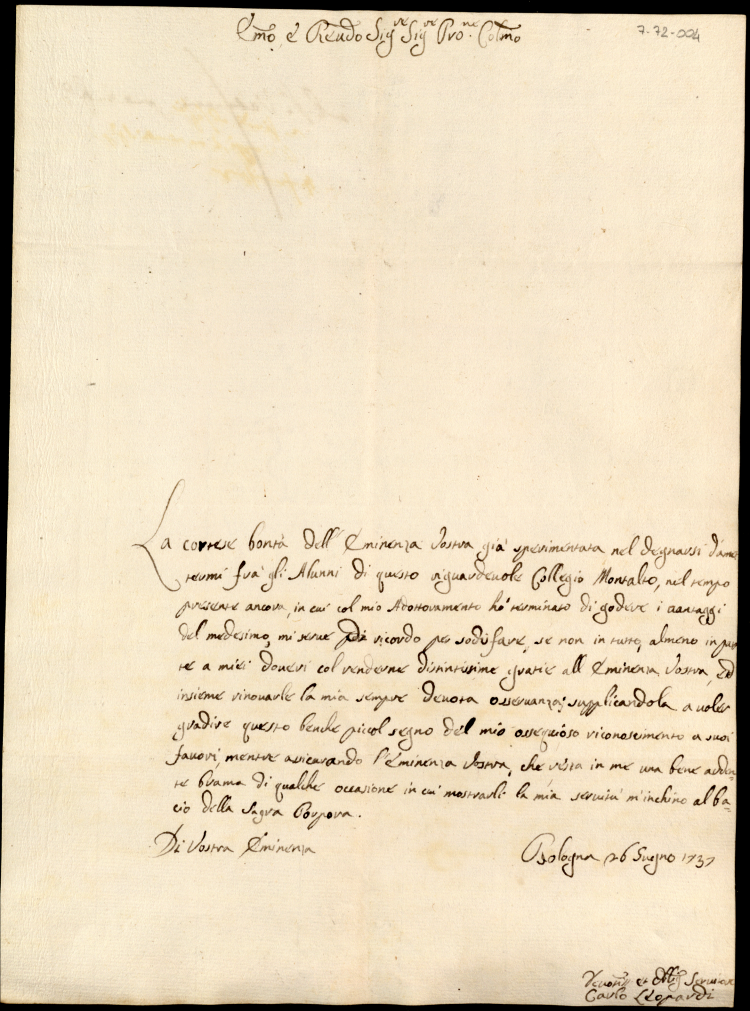 Emo, e Reudo Sigre Sigre Prone Colmo
7-72-004
La cortese bontà dell' Eminenza Vostra già sperimentata nel degnarsi d'ame=
termi frà gli Alunni di questo riguardevole Collegio Montalto, nel tempo
presente ancora, in cui col mio Adottoramento hò terminato di godere i vantaggi
del medesimo, mi serve di ricordo per sodisfare, se non in tutto, almeno in par
te a miei doveri col renderne distintissime gratie all' Eminenza Vostra, ed
insieme rinovarle la mia sempre devota osservanza; supplicandola a voler
gradire questo benche picol segno del mio ossequioso riconoscimento a suoi
favori, mentre assicurando l'Eminenza Vostra, che resta in me una bene arden=
te brama di qualche occasione in cui mostrarli la mia servitù m'inchino al ba=
cio della Sagra Porpora.
Di Vostra Eminenza
Bologna 26 Giugno 1737
et Servitore
Carlo Leopardi